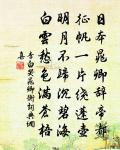 日本晁卿辞帝都
征帆一片繞蓬壺
明月不歸沉碧海
白雲愁色滿蒼梧
李白哭晁卿衡